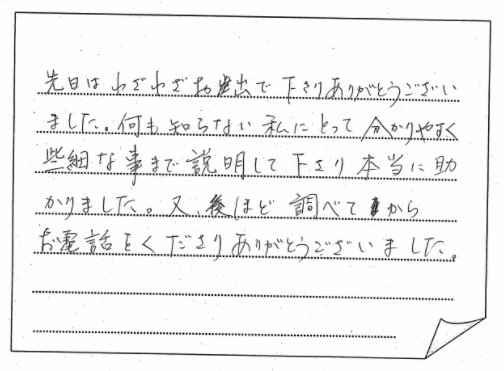 先日はわざわざお出で下さりありがとうござい
ました。何も知らない私にとって分かりやすく
些細な事まで説明して下さり本当に助
かりました。又、後ほど調べてから
お電話をくださりありがとうございました。